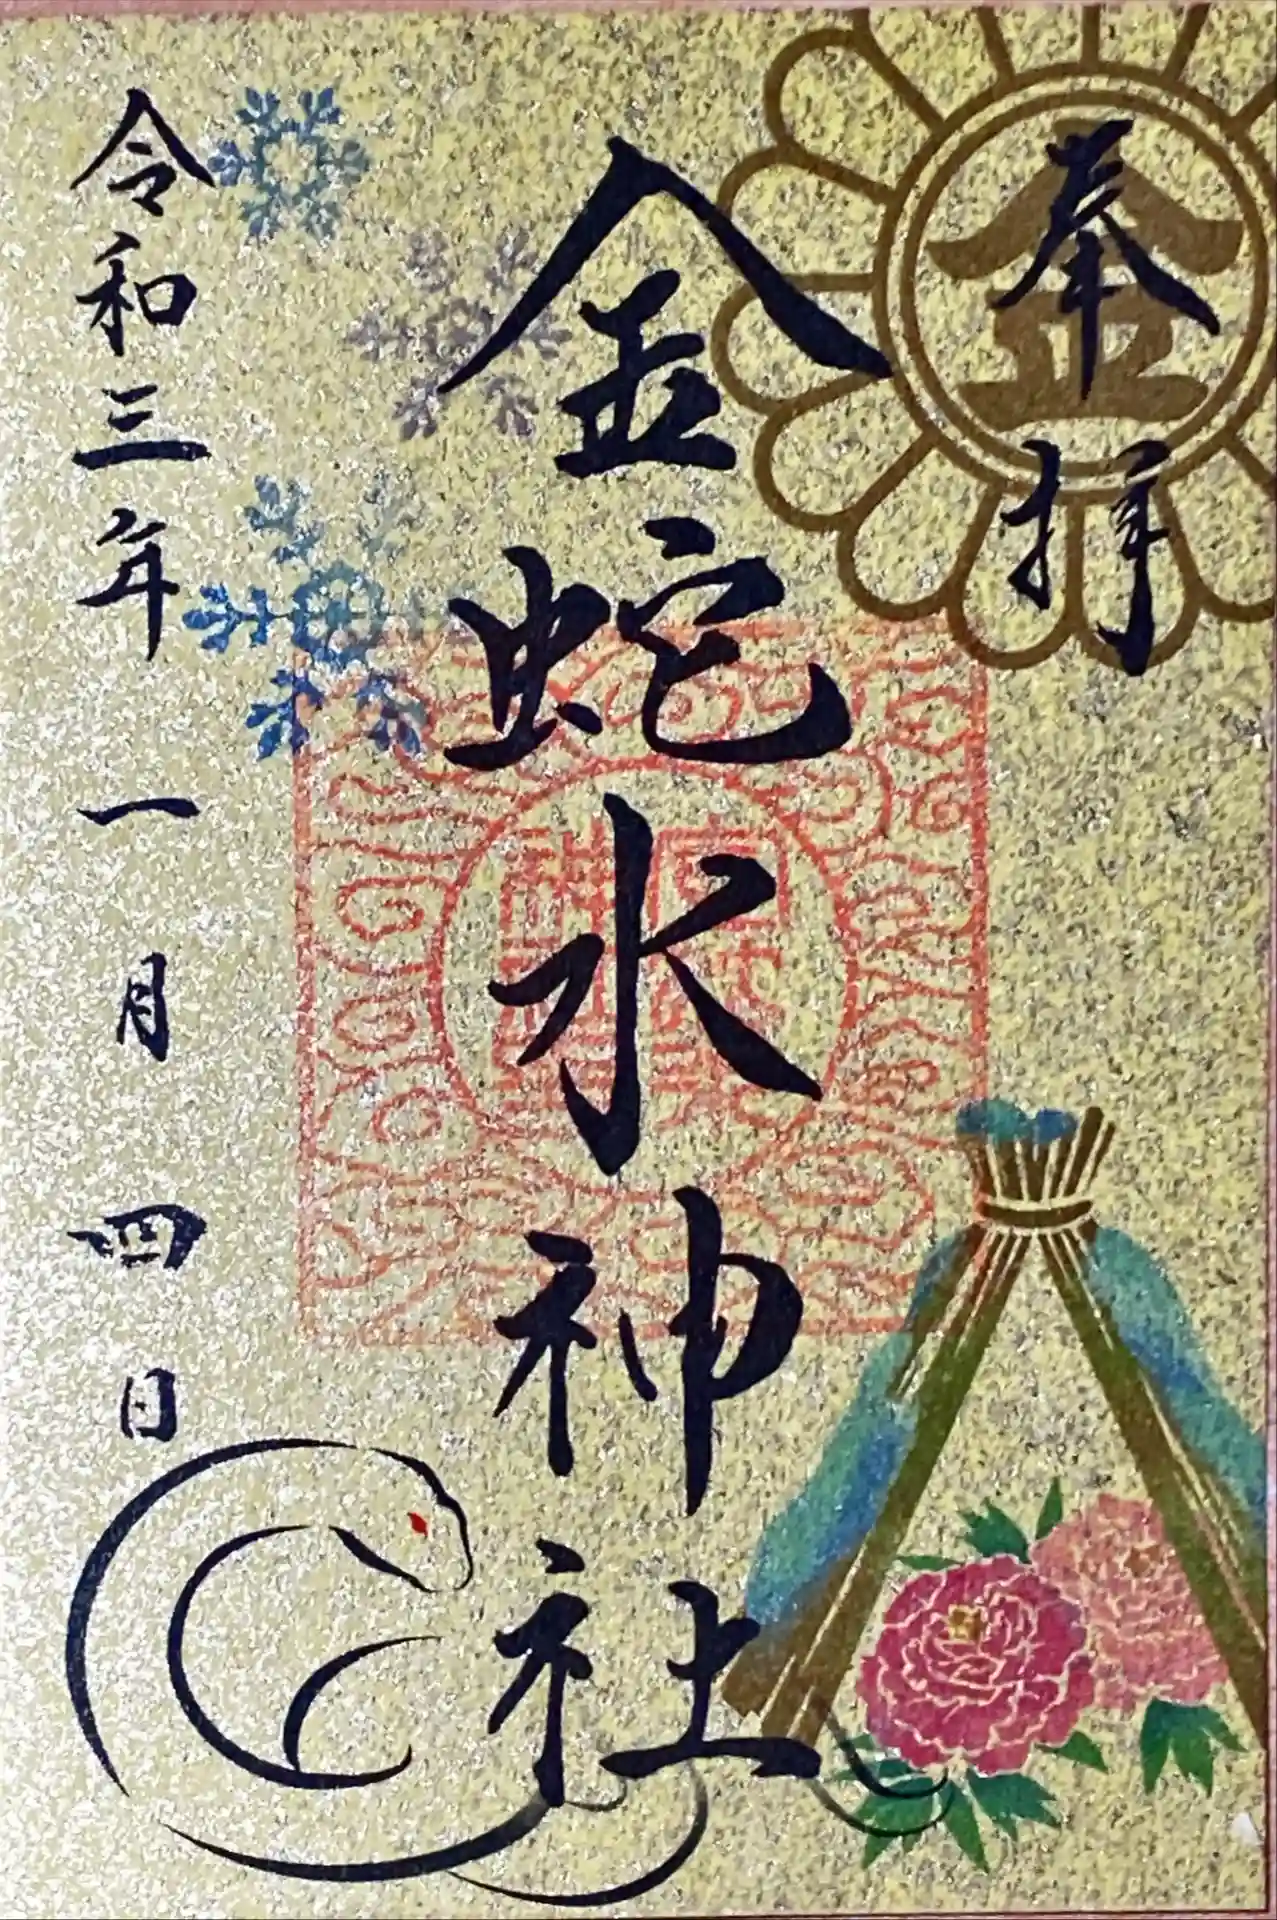 奉拝
金
金蛇水神社
令和三年一月四日